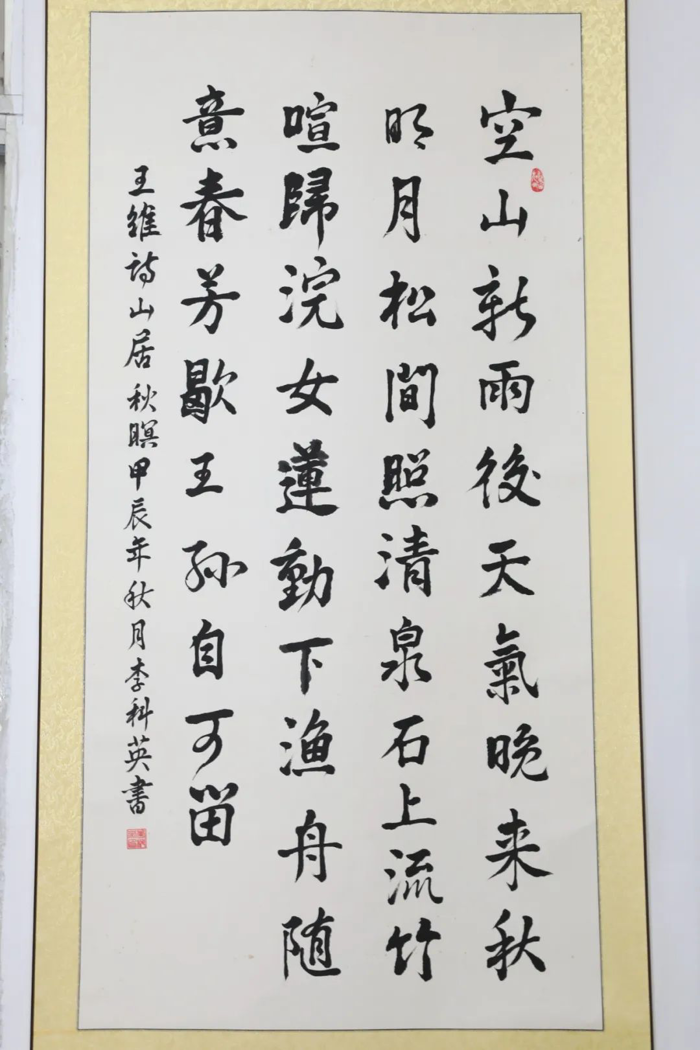 空山新雨後天氣晚来秋
明月松間照清泉石上流竹
喧歸浣女蓮動下漁舟随
意春芳歇王孫自可留
王維詩山居秋暝甲辰年秋月李科英書